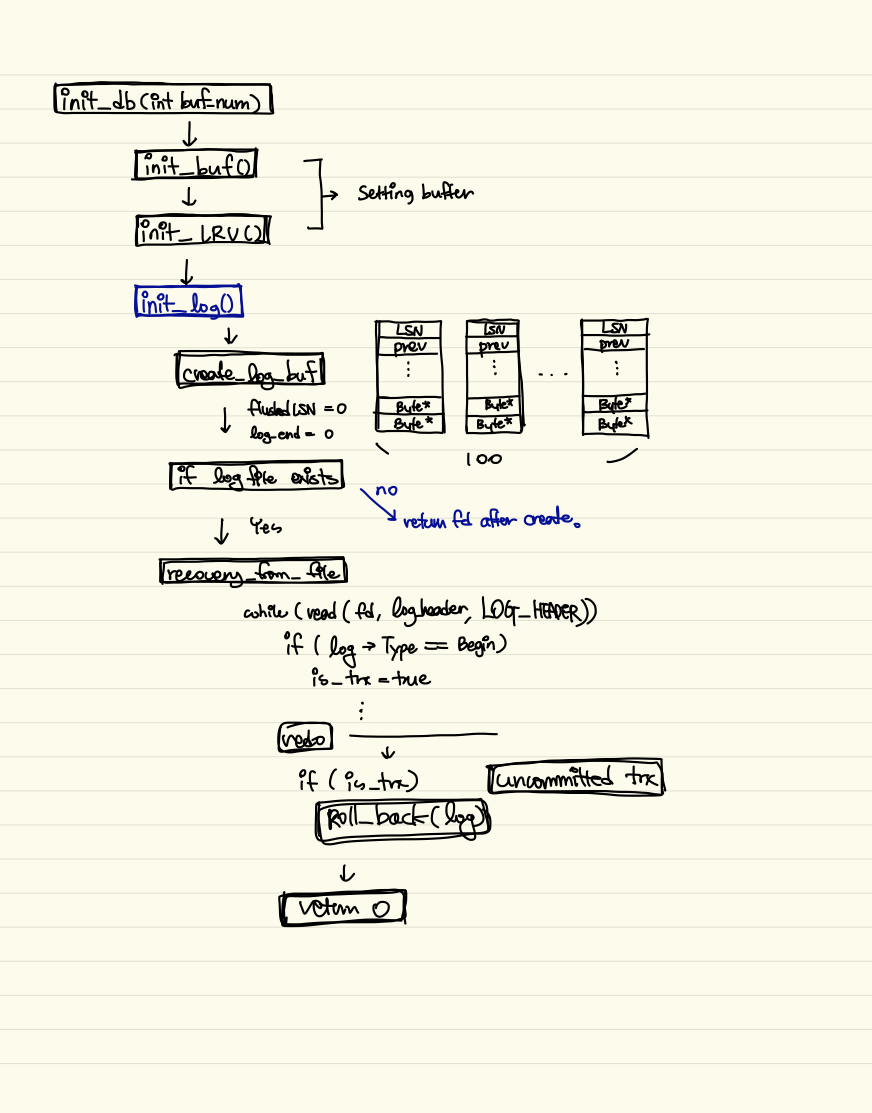 init_db(int buf_num)
init_buf()
Setting buffer
init_LRU()
init_log()
LSN LSN LSN
prev prev prev
create_log_buf
Byte* Byte* Byte*
Byte* Byte* Byte*
flushedLSN = 0
log_end = 0
100
if log file exists
no
return fd after create.
Yes
recovery_from_file
while (read (fd, logheader, LOG_HEADER))
if ( log → Type == Begin)
is_trx = true
redo
if ( is_trx)
uncommitted trx
Roll_back(log)
return 0